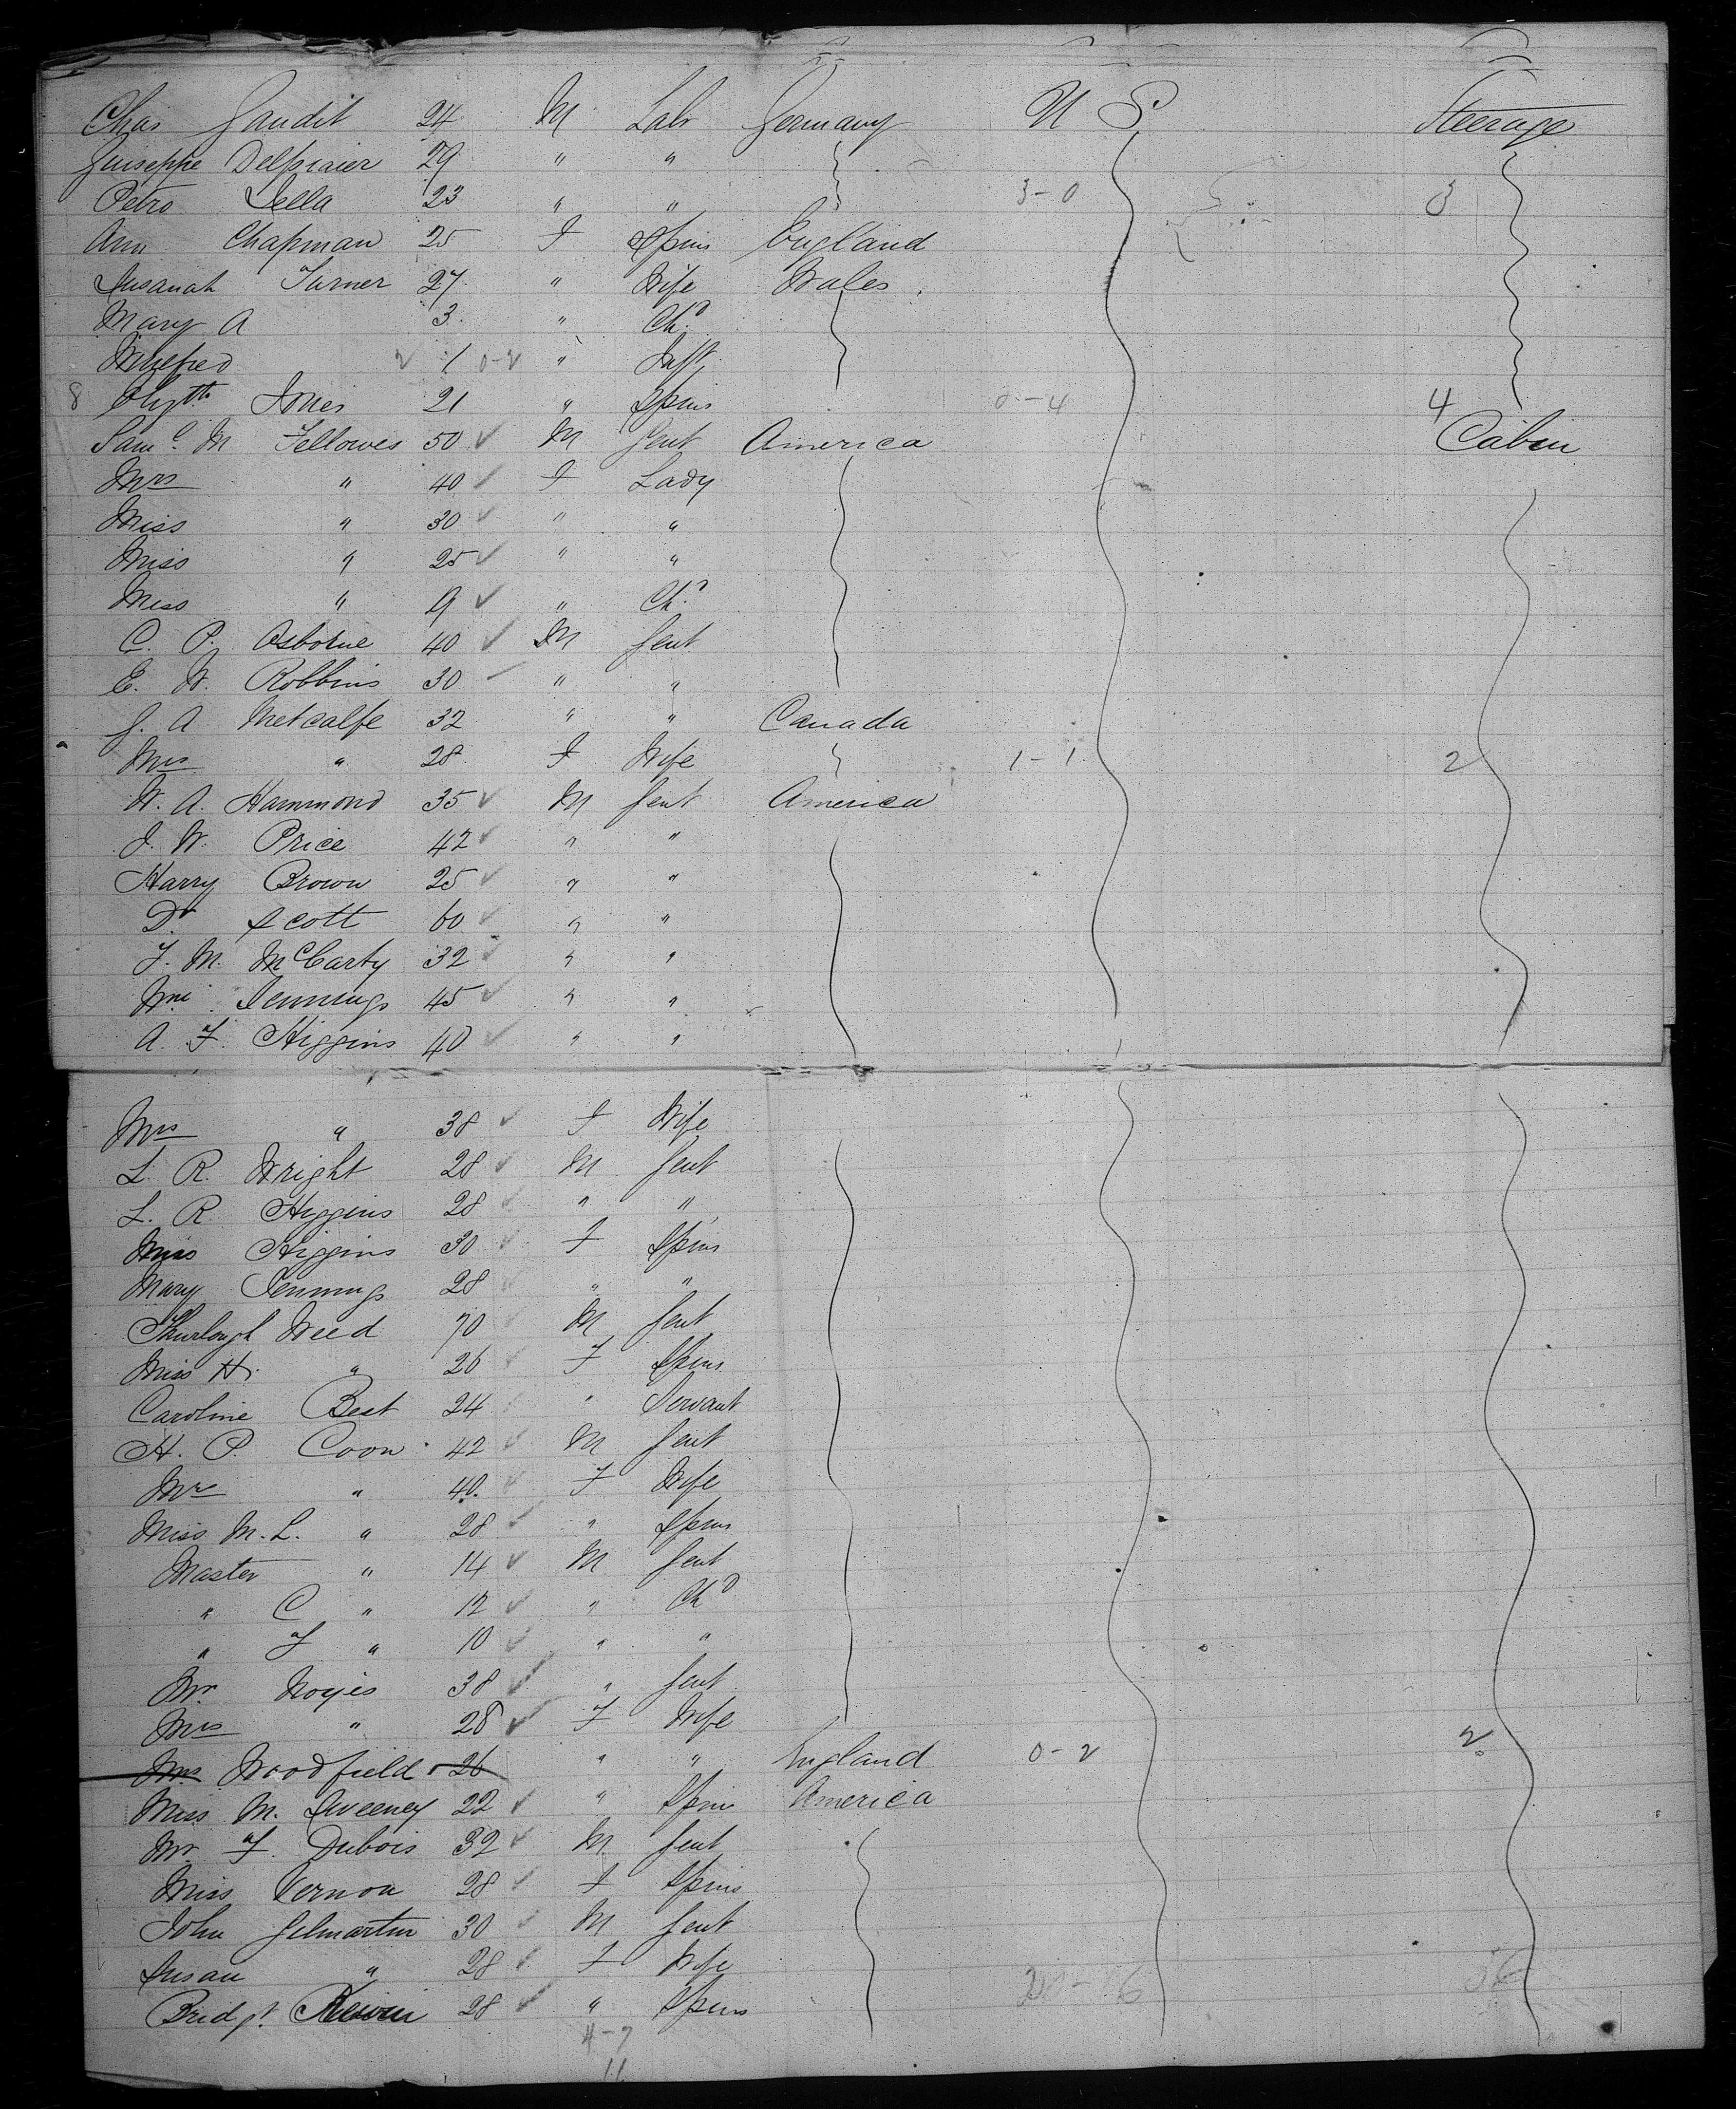 Chas Gaudit 24 M Labr Germany U S Steerage
Guiseppe Delpraier 29 " "
Petro Lella 23 " " 3-0 3
Ann Chapman 25 F Spins England
Susanah Turner 27 " Wife Wales
Mary A 3 " Chd
Winefred 2 1 0-2 " Inft
8 Elizth Jones 21 " Spins 0-4 4
Saml M Fellowes 50 M Gent America Cabin
Mrs " 40 F Lady
Miss " 30 " "
Miss " 25 " "
Miss " 9 " Chd
C. P. Osborne 40 M Gent
E. W. Robbins 30 " "
J. A Metcalfe 32 " " Canada
Mrs " 28 F Wife 1-1 2
W. A. Hammond 35 M Gent America
J. W. Price 42 " "
Harry Brown 25 " "
Dr Scott 60 " "
J. M. McCarty 32 " "
Wm Jennings 45 " "
A. F. Higgins 40 " "
Mrs " 38 F Wife
L. R. Wright 28 M Gent
L. R. Higgins 28 " "
Miss Higgins 30 F Spins
Mary Jennings 28 " "
Thurlough Weed 70 M Gent
Miss H. " 26 F Spins
Caroline Best 24 " Servant
H. P. Coon 42 M Gent
Mrs " 40 F Wife
Miss M. L. " 28 " Spins
Master " 14 M Gent
" C " 12 " Chd
" F " 10 " "
Mr Noyes 38 " Gent
Mrs " 28 F Wife
Mrs Woodfield 26 " " England 0-2 2
Miss M. Sweeney 22 " Spins America
Mr F. Dubois 32 M Gent
Miss Vernon 28 F Spins
John Gilmartin 30 M Gent
Susan " 28 F Wife
Bridgt 28 " Spins
4-7
11